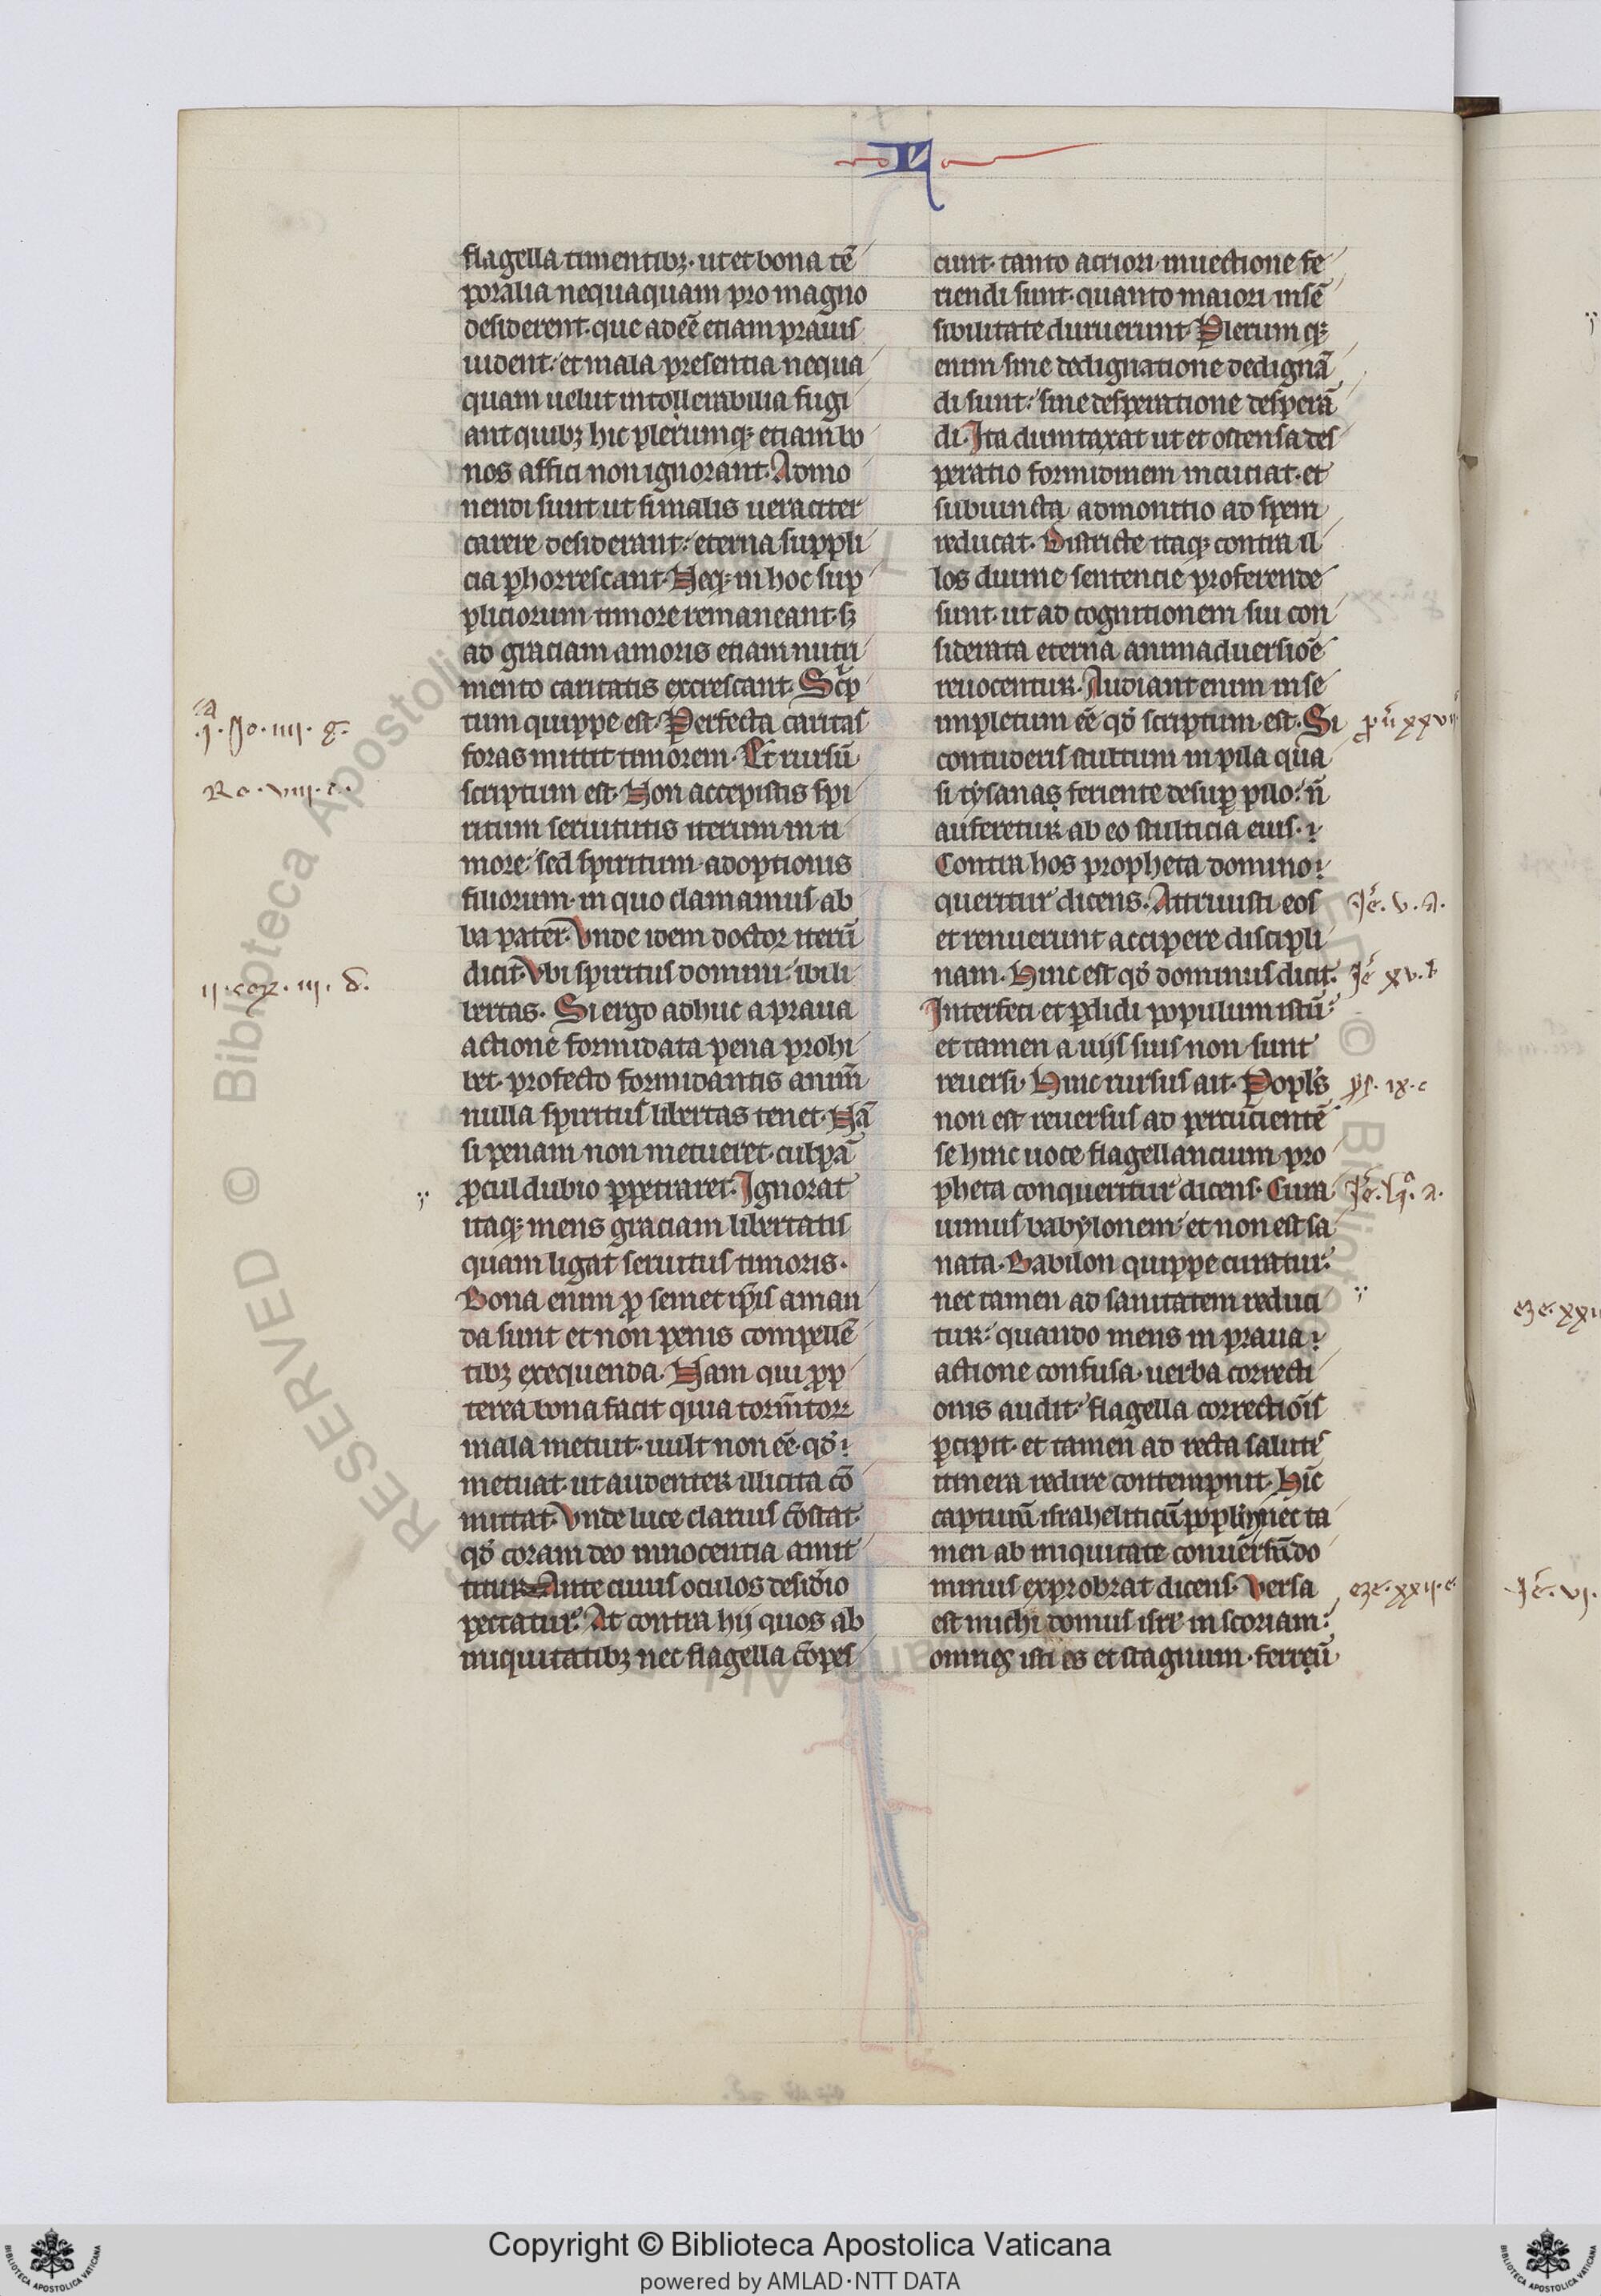 flagella timentibꝫ· ut et bona tē
poralia nequaquam pro magno
desiderent· que adeē etiam prauis
uident: et mala presentia nequa
quam uelut intollerabilia fugi
ant quibꝫ hic plerumqꝫ etiam bo
nos affici non ignorant· Admo
nendi sunt ut si malis ueraciter
carere desiderant: eterna suppli
cia ꝑhorrescant· Neqꝫ in hoc sup
pliciorum timore remaneant· sꝫ
ad graciam amoris etiam nutri
mento caritatis excrescant· Scⁱp
tum quippe est· Perfecta caritas
foras mittit timorem· Et rursū
scriptum est· Non accepistis spi
ritum seruitutis iterum in ti
more: sed spiritum adoptionis
filiorum· in quo clamamus ab
ba pater· Vnde idem doctor iterū
dicit· Vbi spiritus domini: ibi li
bertas· Si ergo adhuc a praua
actione formidata pena prohi
bet· profecto formidantis animū
nulla spiritus libertas tenet· Nā
si penam non metueret· culpā
ꝓcul dubio ꝑpetraret· Ignorat
itaqꝫ mens graciam libertatis
quam ligat seruitus timoris·
Bona enim ꝓ semet ip̄is aman
da sunt et non penis compellē
tibꝫ exequenda· Nam qui ꝓp
terea bona facit quia torm̄toꝝ
mala metuit· uult non eē· qđ
metuat· ut audenter illicita cō
mittat· Vnde luce clarius cōstat·
qđ coram deo innocentia amit
titur Ante cuius oculos desid̓io
peccatur· At contra hij quos ab
iniquitatibꝫ nec flagella cōpes
cunt· tanto acriori inuectione fe
riendi sunt· quanto maiori insē
sibilitate duruerunt· Plerumqꝫ
enim sine dedignatione dedignā
di sunt: sine desperatione desperā
di· Ita dumtaxat ut et ostensa des
peratio formidinem incuciat· et
subiuncta admonitio ad spem
reducat· Districte itaqꝫ contra il
los diuine sentencie proferende
sunt· ut ad cognitionem sui con
siderata eterna animaduersiōe
reuocentur· Audiant enim in se
impletum eē qđ scriptum est· Si
contuderis stultum in pila qua
si tysanas feriente desuꝑ pilo: ñ
auferetur ab eo stulticia eius·
Contra hos propheta domino
queritur dicens· Attriuisti eos
et renuerunt accipere discipli
nam· Hinc est qđ dominus dicit·
Interfeci et ꝑdidi populum istū:
et tamen a uijs suis non sunt
reuersi· Hinc rursus ait· Popls̄
non est reuersus ad percucientē
se hinc uoce flagellancium pro
pheta conqueritur dicens· Cura
uimus babylonem: et non est sa
nata· Babilon quippe curatur:
nec tamen ad sanitatem reduci
tur: quando mens in praua
actione confusa· uerba correcti
onis audit: flagella correctiōis
ꝑcipit· et tamen ad recta salutis
itinera redire contempnit· Hīc
captiuū israheliticū nec ta
men ab iniquitate conuersū do
minus exprobrat dicens· Versa
est michi domus isrl̄ in scoriam:
omnes isti es et stagnum· ferrum
.j. Jo. iiii. g.
Ro. viii. c.
ii. cor. iii. d.
ꝓū xxvii
Je. v. a.
Je xv. b
ys. ix. c
Je. lj. a.
eze. xxii. e.
eze. xxii
Je. vj.
RESERVED © Biblioteca Apostolica
© Bibliotec
Copyright © Biblioteca Apostolica Vaticana
powered by AMLAD·NTT DATA
BIBLIOTECA APOSTOLICA VATICANA
BIBLIOTECA APOSTOLICA VATICANA